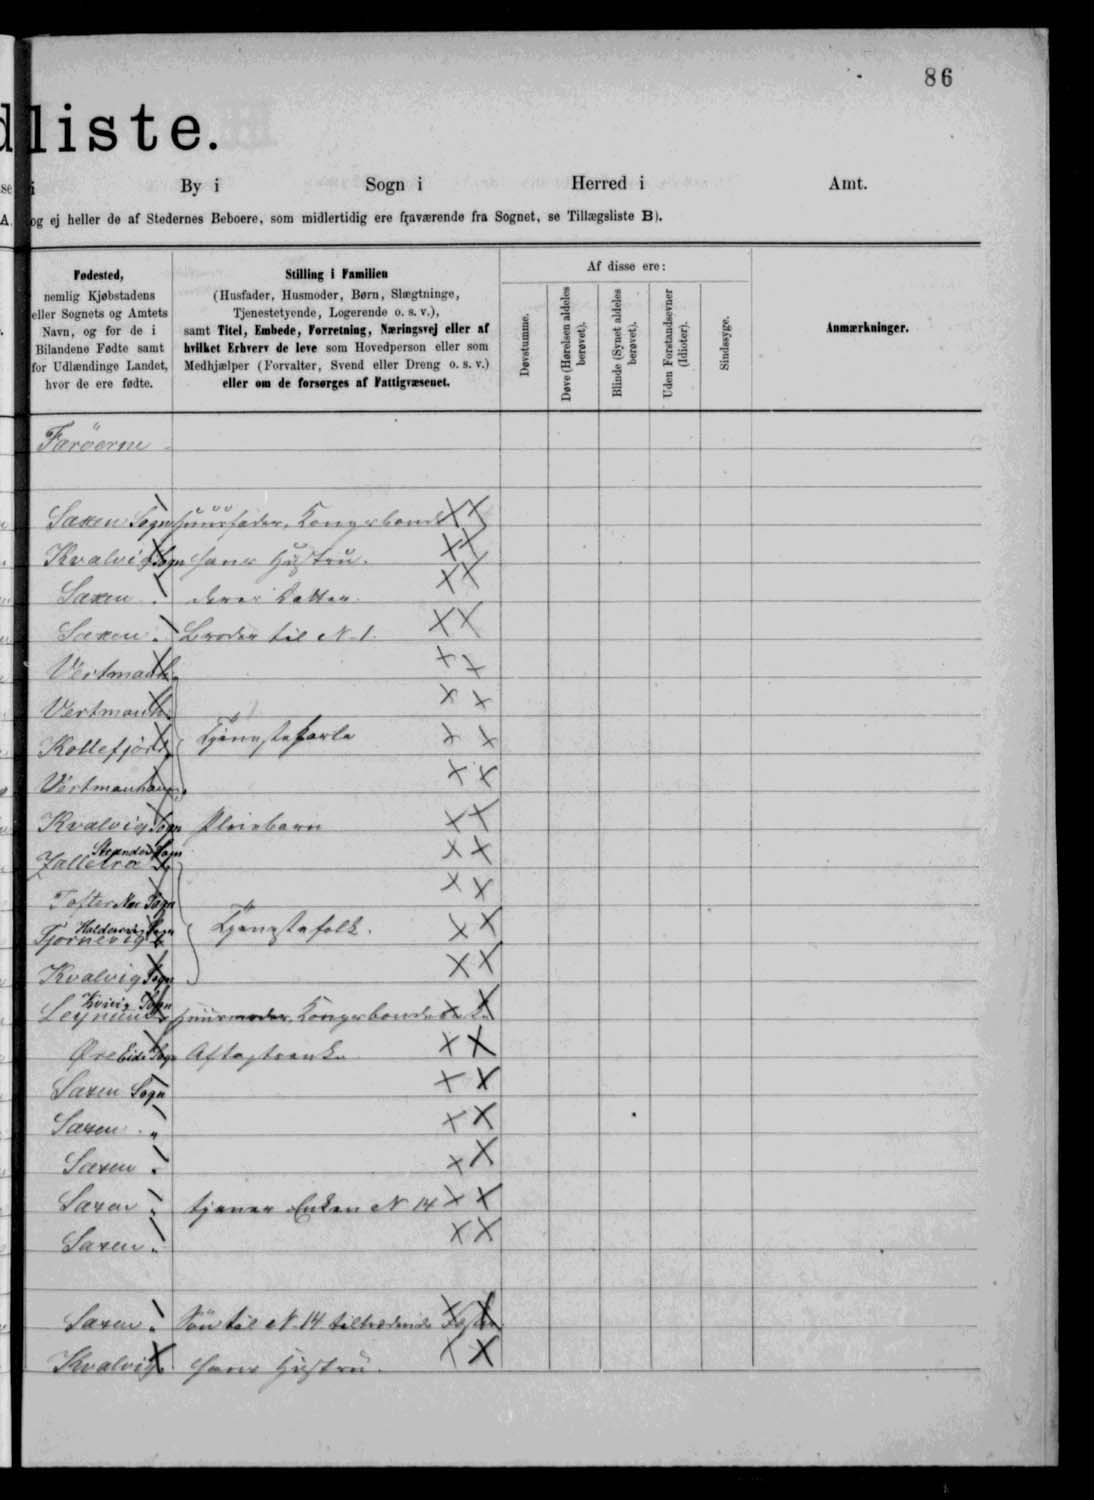 86
dliste.
se i By i Sogn i Herred i Amt.
A. og ej heller de af Stedernes Beboere, som midlertidig ere fraværende fra Sognet, se Tillægsliste B).
Fødested,
nemlig Kjøbstadens
eller Sognets og Amtets
Navn, og for de i
Bilandene Fødte samt
for Udlændinge Landet,
hvor de ere fødte.
Stilling i Familien
(Husfader, Husmoder, Børn, Slægtninge,
Tjenestetyende, Logerende o. s. v.),
samt Titel, Embede, Forretning, Næringsvej eller af
hvilket Erhverv de leve som Hovedperson eller som
Medhjælper (Forvalter, Svend eller Dreng o. s. v.)
eller om de forsørges af Fattigvæsenet.
Af disse ere:
Døvstumme.
Døve (Hørelsen aldeles
berøvet).
Blinde (Synet aldeles
berøvet).
Uden Forstandsevner
(Idioter).
Sindssyge.
Anmærkninger.
Faröerne
Saxen Sogn huusfader, Kongsbonde
Kvalvig Sogn hans Hustru.
Saxen " deres Datter
Saxen " Broder til N 1.
Vestmanh.
Vestmanh.
Kollefjörd Tjenestekarle
Vestmanhavn
Kvalvig Sogn Pleiebarn
Strender Sogn
Zelletra
Tofter Næs Sogn
Haldersvig Sogn
Tjørnevig Tjenestefolk.
Kvalvig Sogn
Kvivig Sogn
Leynum huusmoder, Kongsbonde
Øre Eide Sogn Aftægtsenke
Saxen Sogn
Saxen "
Saxen "
Saxen " tjener Enken N 14
Saxen "
Saxen " Søn til N 14 tiltrædende Fæster
Kvalvig hans Hustru.